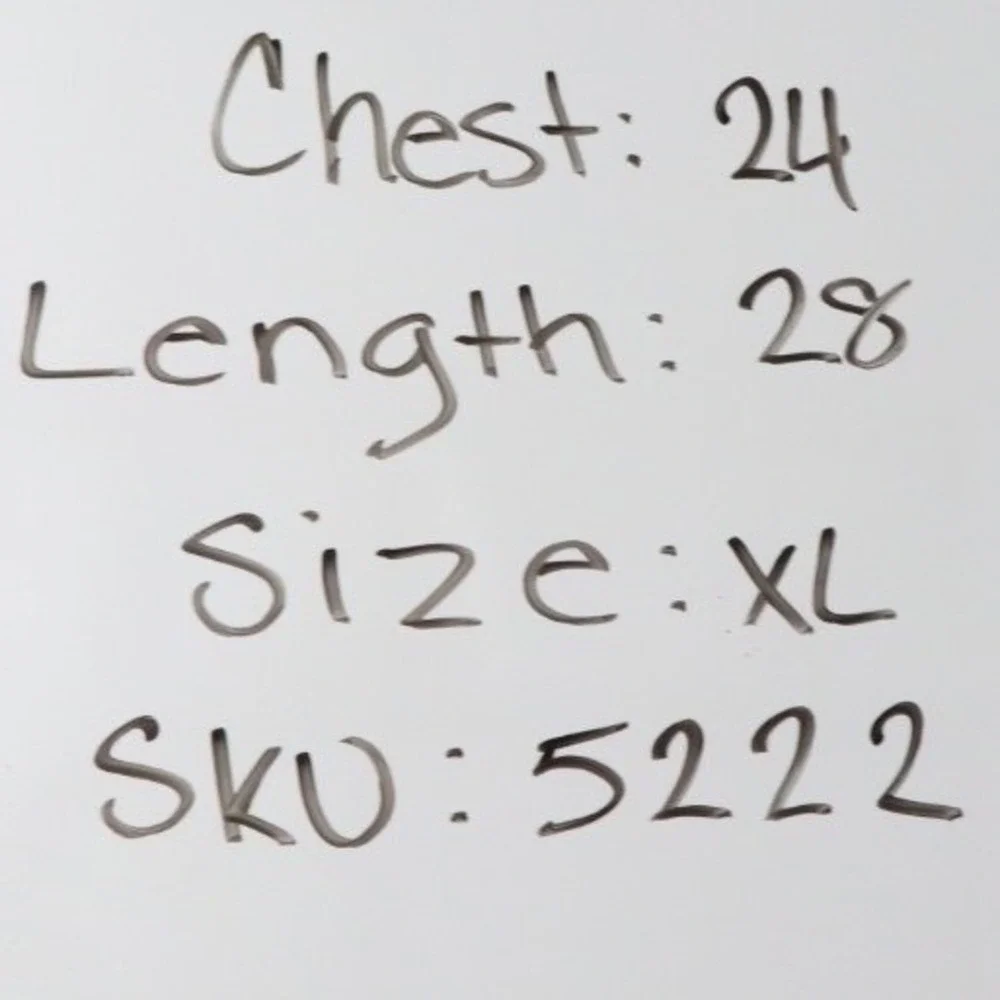 Chest: 24
Length: 28
Size: XL
SKU: 5222